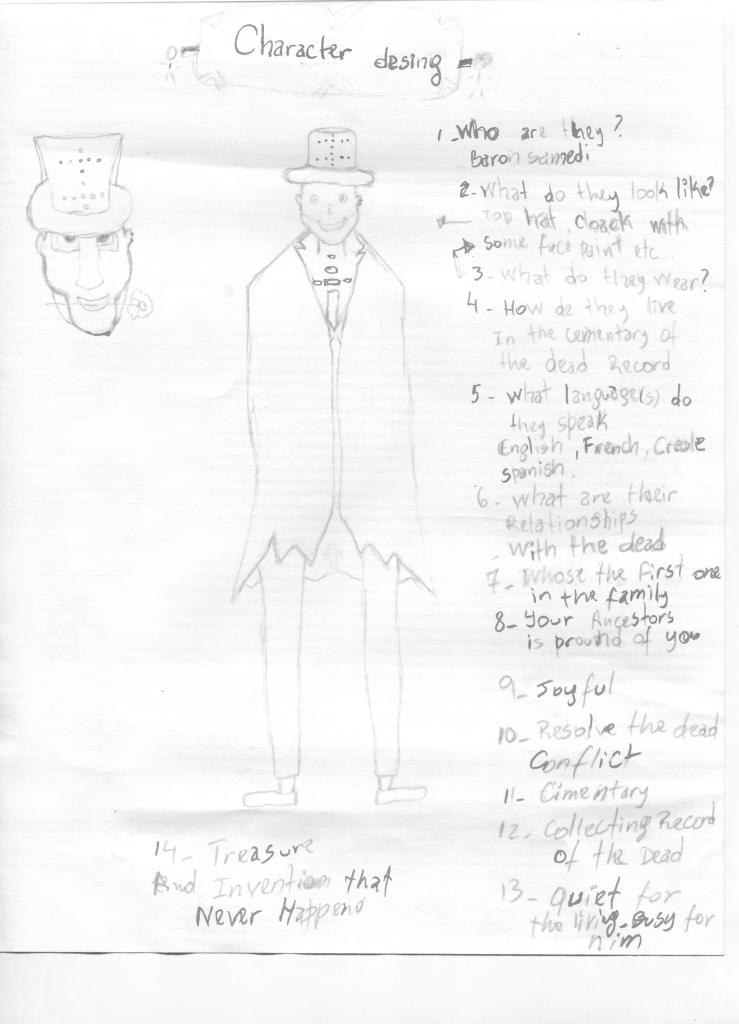 Character desing
1 - Who are they?
Baron samedi
2 - What do they look like?
Top hat, cloack with
some face paint etc...
3 - What do they wear?
4 - How do they live
In the cementary of
the dead Record
5 - What language(s) do
they speak
English, French, Creole
spanish.
6 - What are their
Relationships
with the dead
7 - Whose the first one
in the family
8 - Your Ancestors
is pround of you
9 - Joyful
10 - Resolve the dead
Conflict
11 - Cimentary
12 - Collecting Record
of the Dead
13 - quiet for
the living - Busy for
him
14 - Treasure
And Invention that
Never Happend